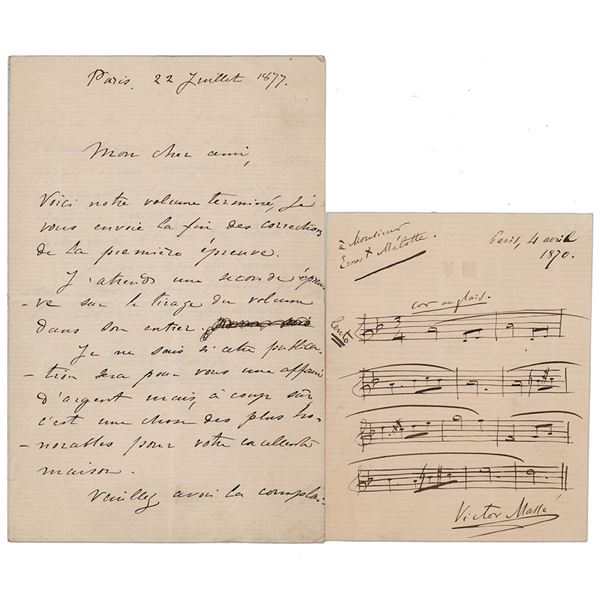 Paris, 22 Juillet 1877.
Mon cher ami,
Voici notre volume terminé, je
vous envoie la fin des corrections
de la première épreuve.
J'attends une seconde épreu-
-ve sur le tirage du volume
dans son entier.
Je ne sais si cette publica-
-tion sera pour vous une affaire
d'argent mais, à coup sûr
c'est une chose des plus ho-
-norables pour votre excellente
maison.
Veuillez avoir la complai-
à Monsieur
Ernest
Paris, 4 avril
1870.
cor anglais.
Lento
3
4
Victor Massé